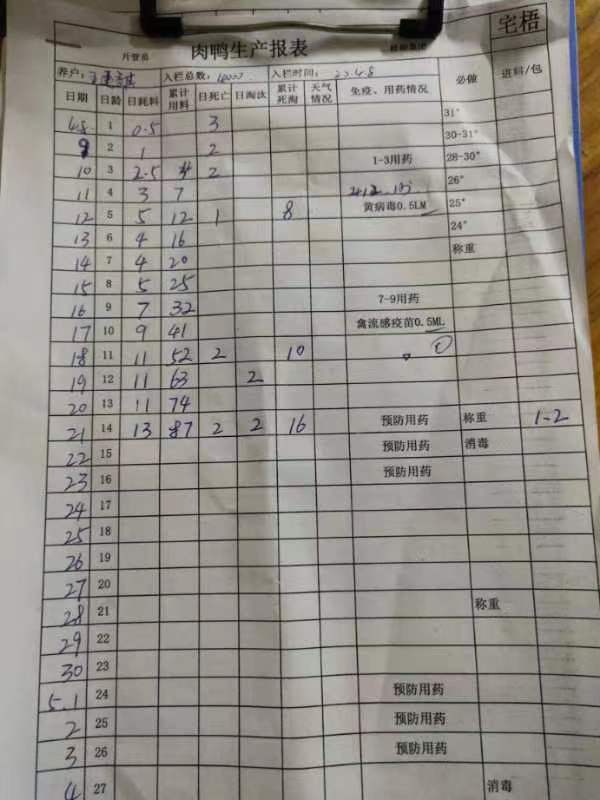 宅梧
片管员
肉鸭生产报表
养户: 入栏总数: 10000 入栏时间: 22.4.8
日期 日龄 日耗料 累计用料 日死亡 日淘汰 累计死淘 天气情况 免疫、用药情况 必做 进料/包
4.8 1 0.5 3 31°
9 2 1 2 30-31°
10 3 2.5 4 2 1-3用药 28-30°
11 4 3 7 26°
12 5 5 12 1 8 黄病毒0.5LM 25°
13 6 4 16 24°
14 7 4 20 称重
15 8 5 25
16 9 7 32 7-9用药
17 10 9 41 禽流感疫苗0.5ML
18 11 11 52 2 10 ①
19 12 11 63 2
20 13 11 74
21 14 13 87 2 2 16 预防用药 称重 1-2
22 15 预防用药 消毒
23 16 预防用药
24 17
25 18
26 19
27 20
28 21 称重
29 22
30 23
5.1 24 预防用药
2 25 预防用药
3 26 预防用药
4 27 消毒